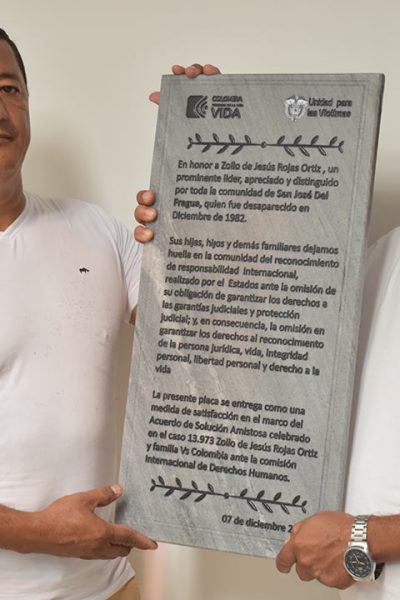 COLOMBIA
POTENCIA DE LA VIDA
VIDA
Unidad para
las Víctimas
En honor a Zoilo de Jesús Rojas Ortiz , un
prominente líder, apreciado y distinguido
por toda la comunidad de San José Del
Fragua, quien fue desaparecido en
Diciembre de 1982.
Sus hijas, hijos y demás familiares dejamos
huella en la comunidad del reconocimiento
de responsabilidad internacional,
realizado por el Estados ante la omisión de
su obligación de garantizar los derechos a
las garantías judiciales y protección
judicial; y, en consecuencia, la omisión en
garantizar los derechos al reconocimiento
de la persona jurídica, vida, integridad
personal, libertad personal y derecho a la
vida
La presente placa se entrega como una
medida de satisfacción en el marco del
Acuerdo de Solución Amistosa celebrado
en el caso 13.973 Zoilo de Jesús Rojas Ortiz
y familia Vs Colombia ante la comisión
Internacional de Derechos Humanos.
07 de diciembre 2